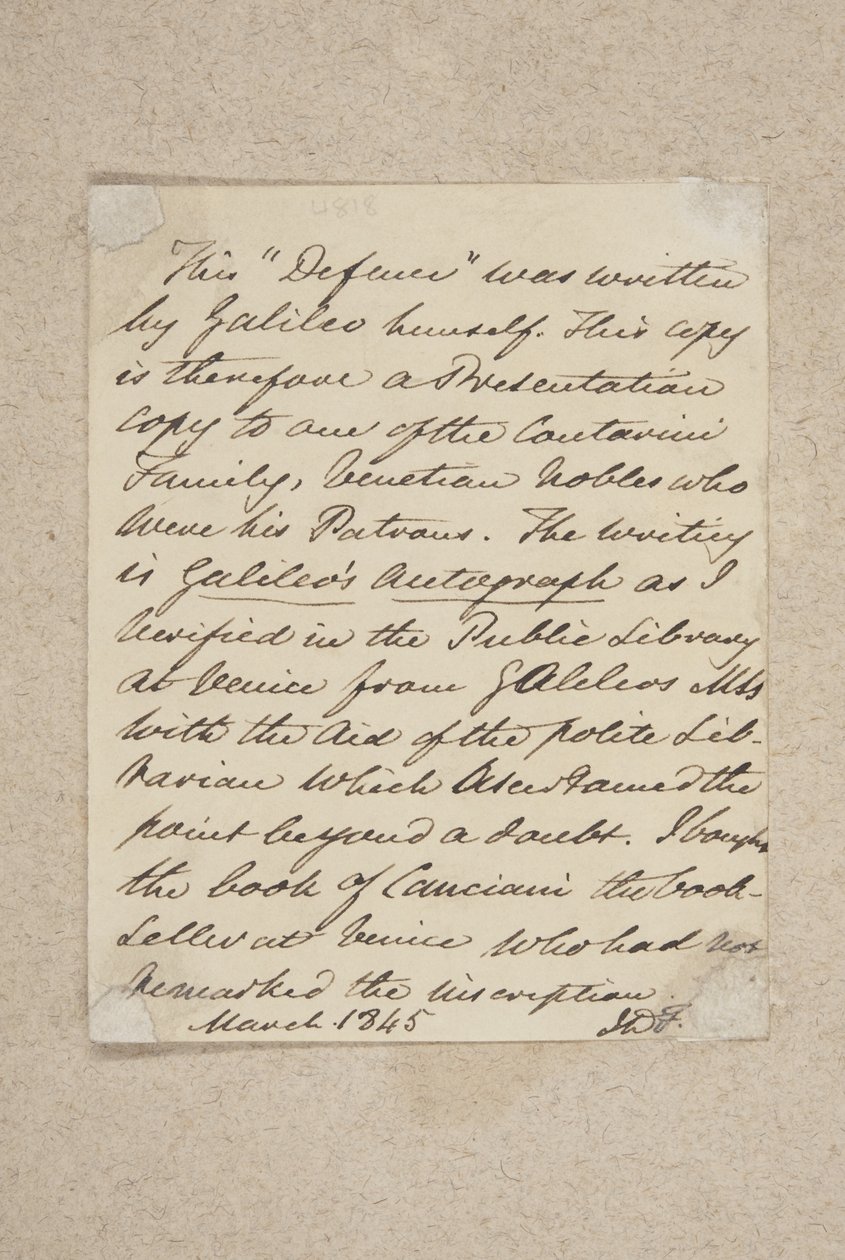 4818
This "Defence" was written
by Galileo himself. This copy
is therefore a Presentation
copy to one of the Contarini
Family, Venetian Nobles who
were his Patrons. The writing
is Galileo's Autograph as I
verified in the Public Library
at Venice from Galileos MSS
with the aid of the polite Lib-
rarian which ascertained the
point beyond a doubt. I bought
the book of Canciani the book-
seller at Venice who had not
remarked the inscription
March. 1845